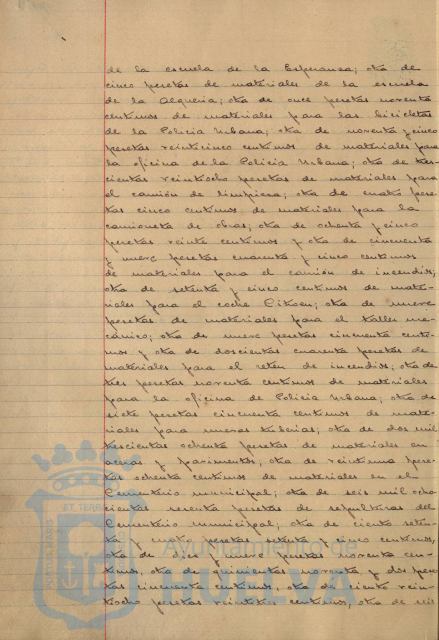 de la escuela de la Esperanza; otra de
cinco pesetas de materiales de la escuela
de la Alqueria; otra de once pesetas noventa
centimos de materiales para las bicicletas
de la Policia Urbana; otra de noventa y cinco
pesetas veinticinco centimos de materiales para
la oficina de la Policia Urbana; otra de tres-
cientas veintiocho pesetas de materiales para
el camión de limpieza; otra de cuatro pese-
tas cinco centimos de materiales para la
camioneta de obras; otra de ochenta y cinco
pesetas veinte centimos y otra de cincuenta
y nueve pesetas cuarenta y cinco centimos
de materiales para el camión de incendios;
otra de setenta y cinco centimos de mate-
riales para el coche Citroen; otra de nueve
pesetas de materiales para el taller me-
cánico; otra de nueve pesetas cincuenta centi-
mos y otra de doscientas cuarenta pesetas de
materiales para el reten de incendios; otra de
tres pesetas noventa centimos de materiales
para la oficina de Policia Urbana; otra de
siete pesetas cincuenta centimos de mate-
riales para nuevas tuberias; otra de dos mil
trescientas ochenta pesetas de materiales en
aceras y pavimentos; otra de veintiuna pese-
tas ochenta centimos de materiales en el
Cementerio municipal; otra de seis mil ocho
cientas pesetas de sepulturas del
Cementerio municipal; otra de ciento seten-
ta y cuatro pesetas setenta y cinco centimos;
otra de diez y nueve pesetas noventa cen-
timos, otra de quinientas noventa y dos pese
tas cincuenta centimos, otra de ciento vein-
tiocho pesetas veintitres centimos, otra de seis
ET TERRAE
Ayuntamiento de
HUELVA